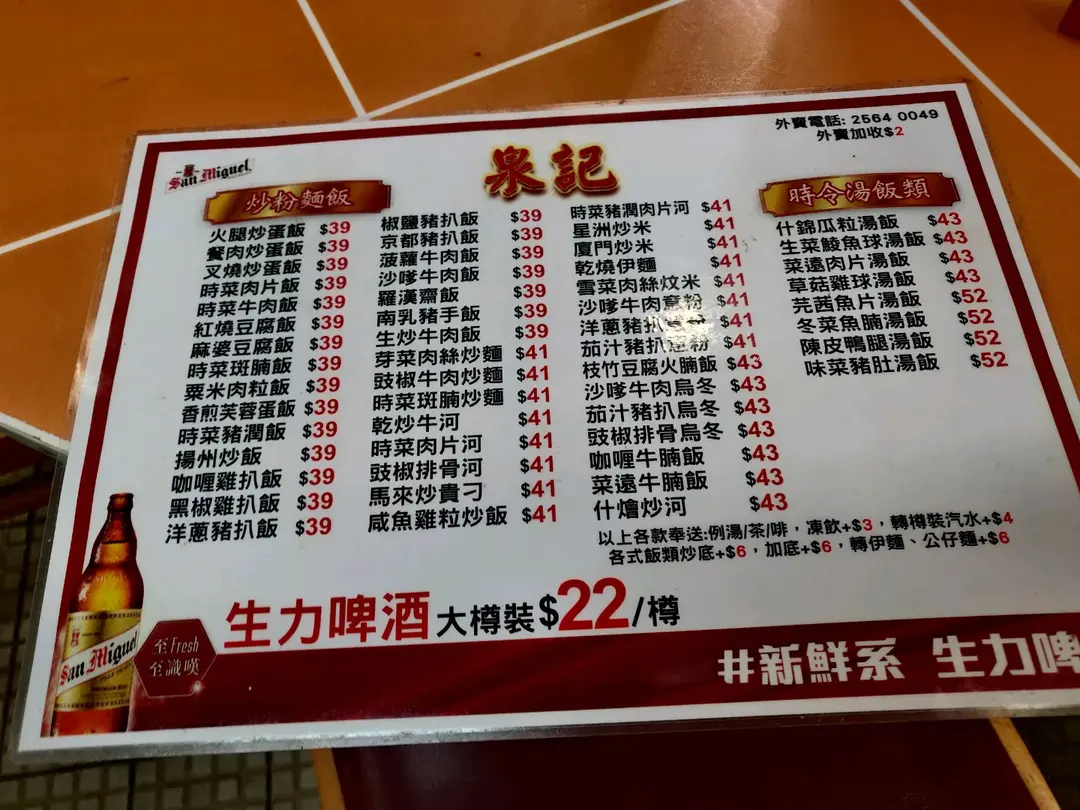 外賣電話: 2564 0049
外賣加收$2
San Miguel
泉記
炒粉麵飯
火腿炒蛋飯 $39
餐肉炒蛋飯 $39
叉燒炒蛋飯 $39
時菜肉片飯 $39
時菜牛肉飯 $39
紅燒豆腐飯 $39
麻婆豆腐飯 $39
時菜斑腩飯 $39
粟米肉粒飯 $39
香煎芙蓉蛋飯 $39
時菜豬潤飯 $39
揚州炒飯 $39
咖喱雞扒飯 $39
黑椒雞扒飯 $39
洋蔥豬扒飯 $39
椒鹽豬扒飯 $39
京都豬扒飯 $39
菠蘿牛肉飯 $39
沙嗲牛肉飯 $39
羅漢齋飯 $39
南乳豬手飯 $39
生炒牛肉飯 $39
芽菜肉絲炒麵 $41
豉椒牛肉炒麵 $41
時菜斑腩炒麵 $41
乾炒牛河 $41
時菜肉片河 $41
豉椒排骨河 $41
馬來炒貴刁 $41
咸魚雞粒炒飯 $41
時菜豬潤肉片河 $41
星洲炒米 $41
廈門炒米 $41
乾燒伊麵 $41
雪菜肉絲炆米 $41
沙嗲牛肉意粉 $41
洋蔥豬扒意粉 $41
茄汁豬扒意粉 $41
枝竹豆腐火腩飯 $43
沙嗲牛肉烏冬 $43
茄汁豬扒烏冬 $43
豉椒排骨烏冬 $43
咖喱牛腩飯 $43
菜遠牛腩飯 $43
什燴炒河 $43
時令湯飯類
什錦瓜粒湯飯 $43
生菜鯪魚球湯飯 $43
菜遠肉片湯飯 $43
草菇雞球湯飯 $43
芫茜魚片湯飯 $52
冬菜魚腩湯飯 $52
陳皮鴨腿湯飯 $52
味菜豬肚湯飯 $52
以上各款奉送:例湯/茶/啡，凍飲+$3，轉樽裝汽水+$4
各式飯類炒底+$6，加底+$6，轉伊麵、公仔麵+$6
生力啤酒 大樽裝$22/樽
San Miguel
至Fresh
至識嘆
#新鮮系 生力啤